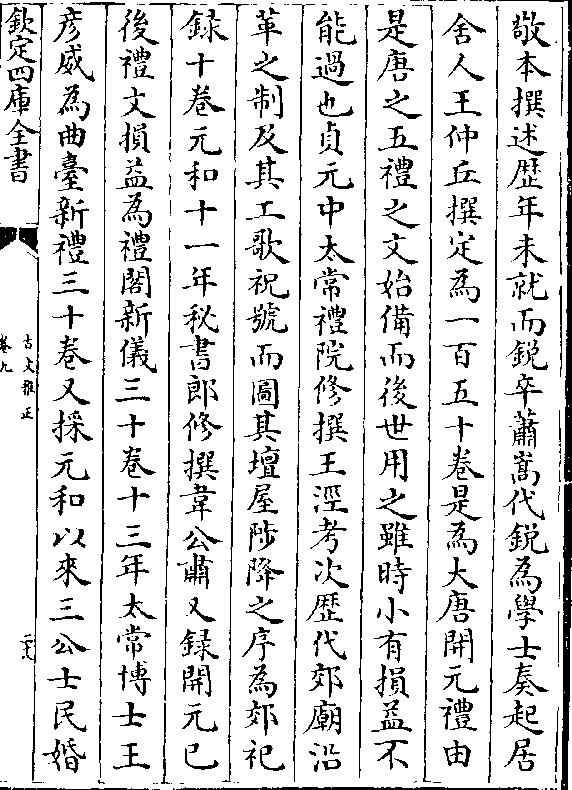 敬本撰述歴年未就而鋭卒蕭嵩代鋭為學士奏起居
舍人王仲丘撰定為一百五十卷是為大唐開元禮由
是唐之五禮之文始備而後世用之雖時小有損益不
能過也貞元中太常禮院修撰王涇考次歴代郊廟沿
革之制及其工歌祝號而圖其壇屋陟降之序為郊祀
録十卷元和十一年秘書郎修撰韋公肅又録開元已
後禮文損益為禮閣新儀三十卷十三年太常博士王
彦威為曲臺新禮三十卷又採元和以來三公士民婚
欽定四庫全書
古文雅正
卷九